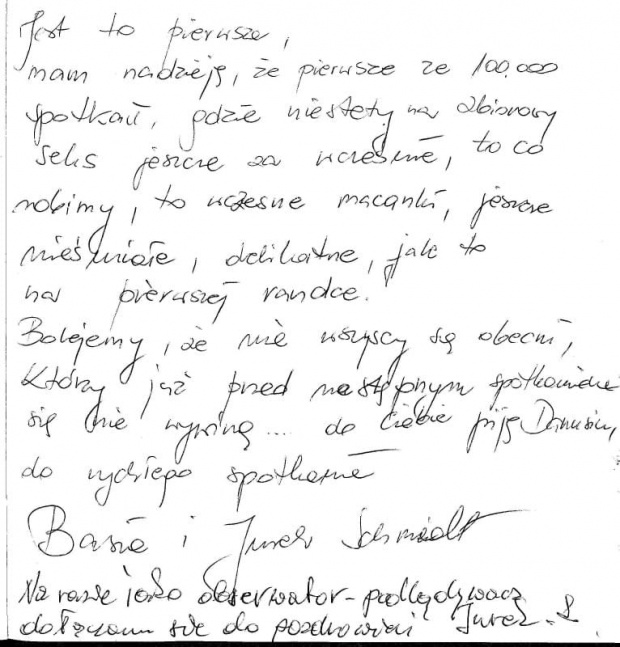 Jest to pierwsze,
mam nadzieję, że pierwsze ze 100.000
spotkań, gdzie niestety na zbiorowy
seks jeszcze za wcześnie, to co
robimy, to wczesne macanki, jeszcze
nieśmiałe, delikatne, jak to
na pierwszej randce.
Bolejemy, że nie wszyscy są obecni,
którzy już przed następnym spotkaniem
się nie wywiną... do Ciebie piję Danusiu,
do rychłego spotkania
Basia i Jurek Schmidt
Na razie jako obserwator-podlędywacz
dołączam się do pozdrowień Jurek.S